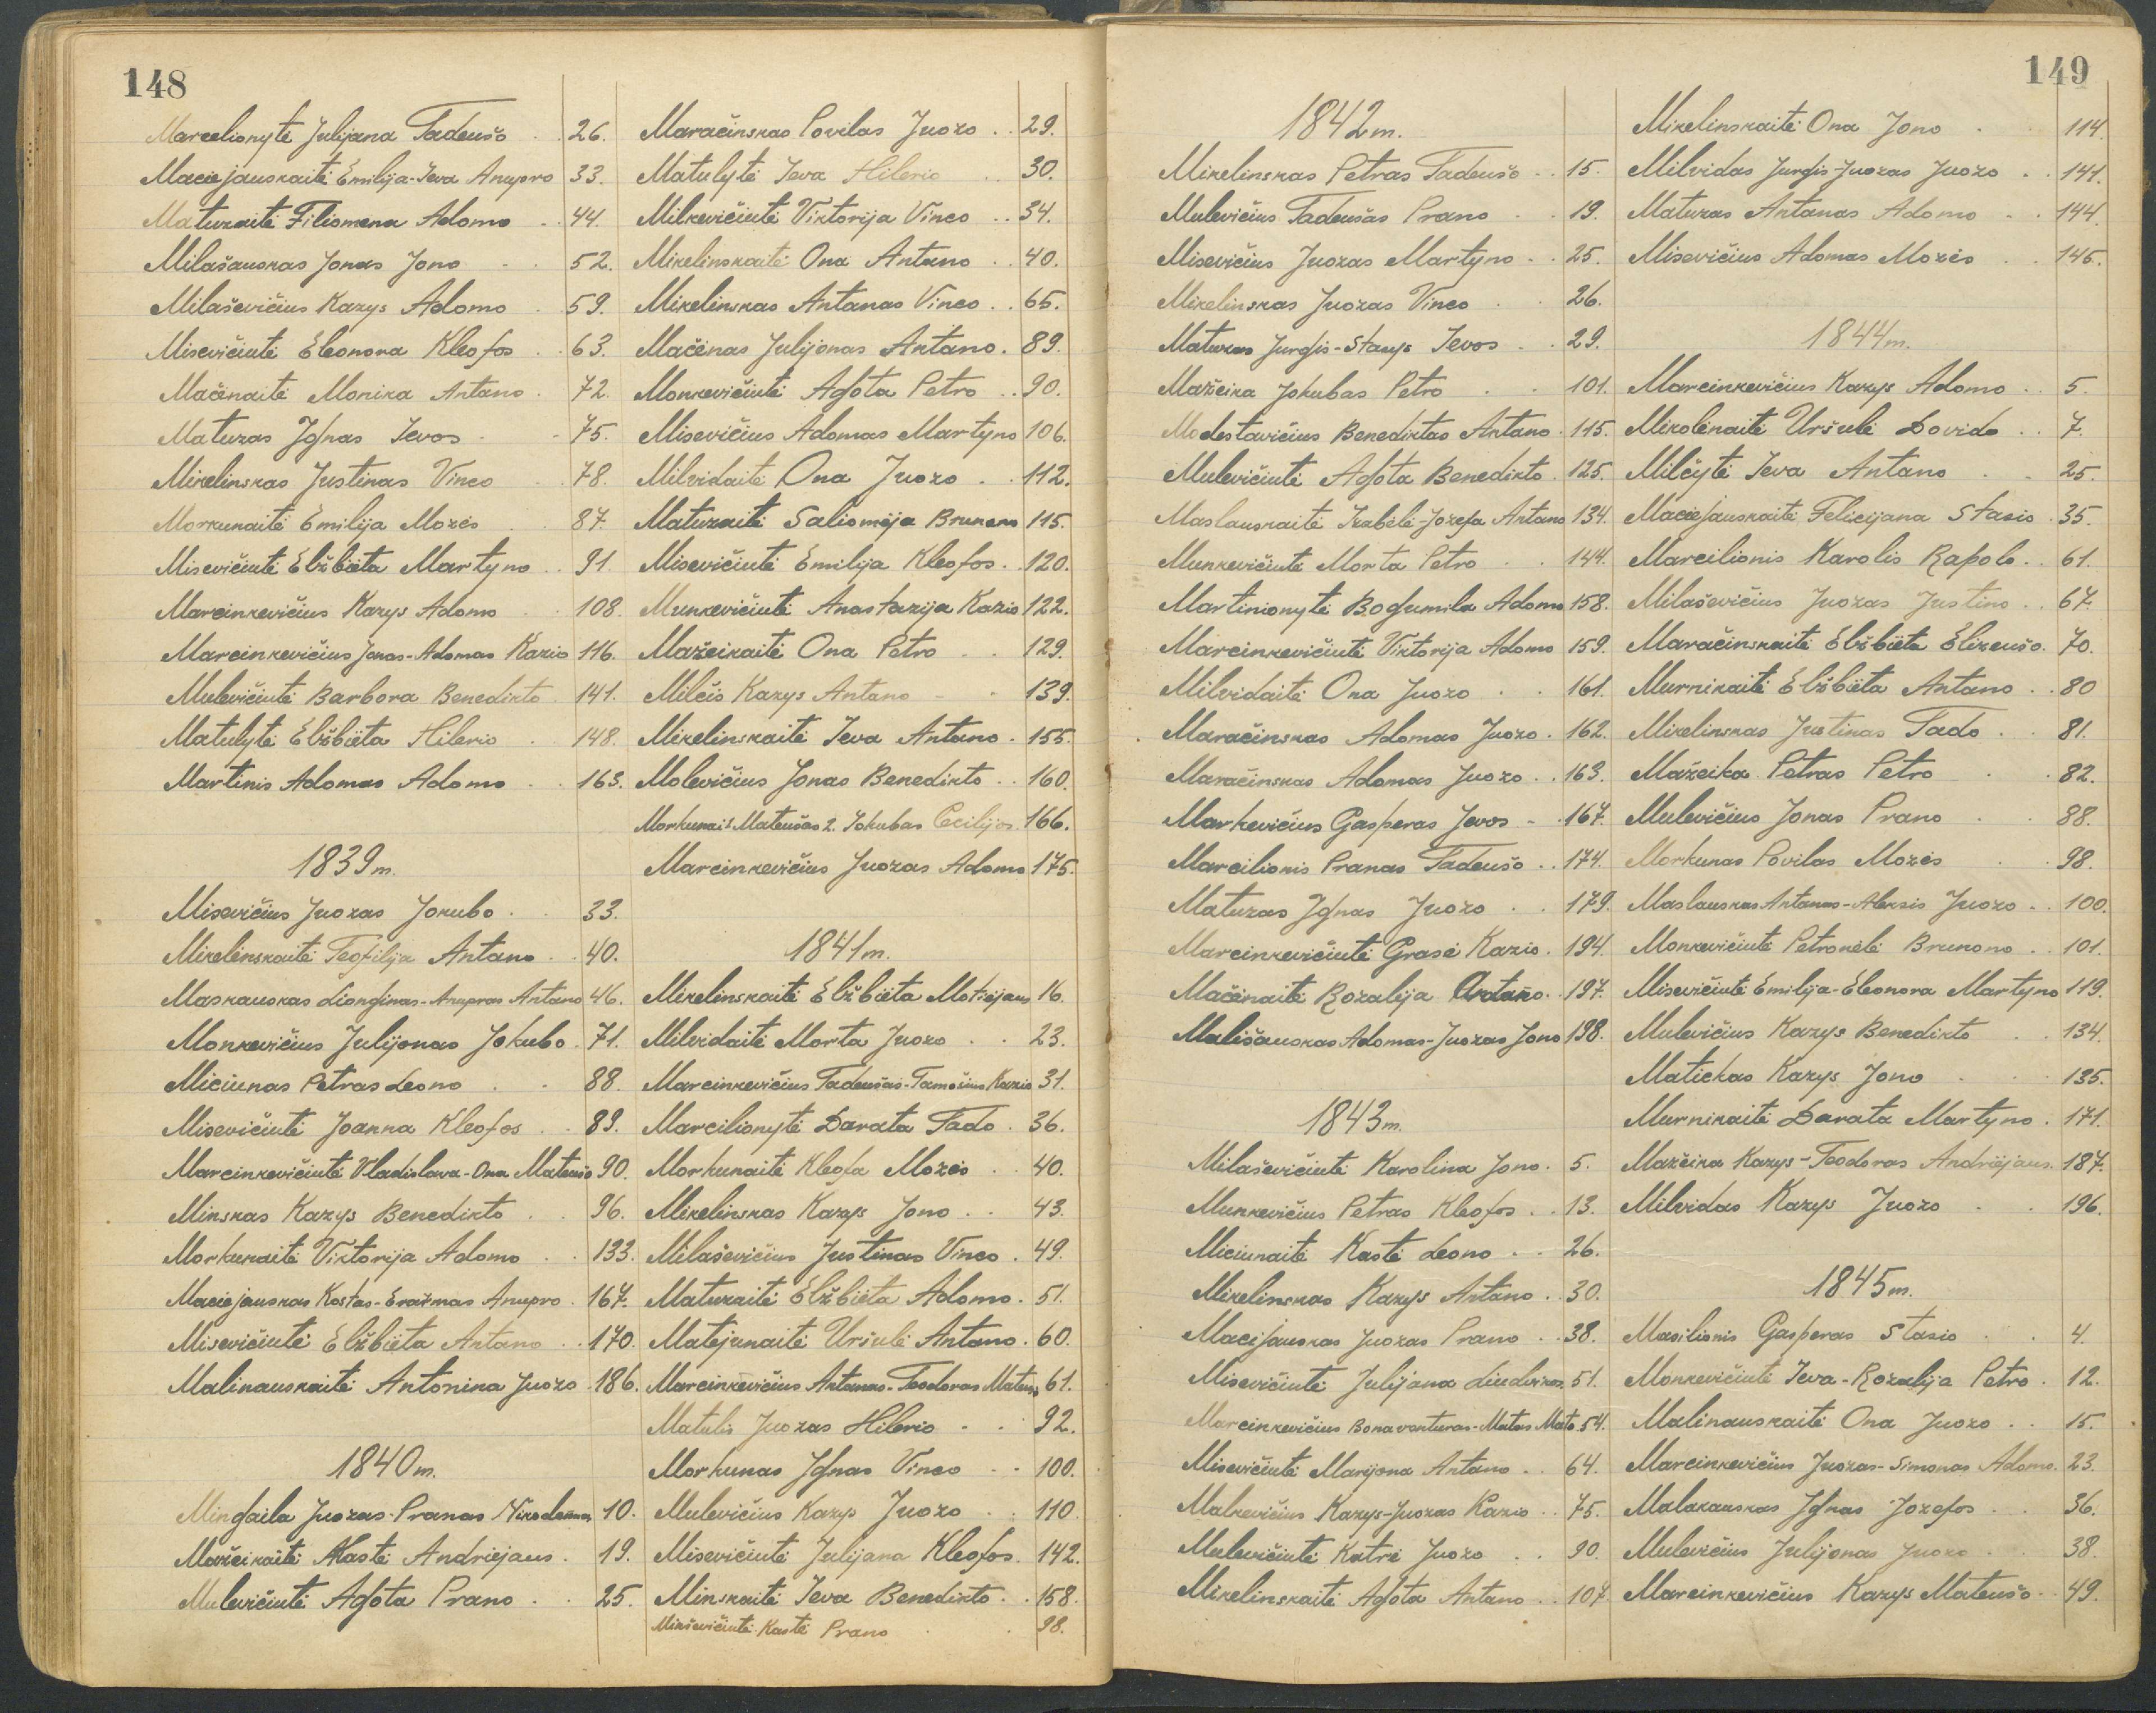 148
Marcelionytė Julijana Tadeušo . . 26.
Maciejauskaitė Emilija-Ieva Anupro 33.
Matuzaitė Filiomena Adomo . . 44.
Milašauskas Jonas Jono . . 52.
Milaševičius Kazys Adomo . 59.
Misevičiutė Eleonora Kleofos . . 63.
Mačėnaitė Monika Antano . 72.
Matuzas Ignas Ievos . . 75.
Mikelinskas Justinas Vinco . . 78.
Morkunaitė Emilija Mozės . . 87.
Misevičiutė Elžbieta Martyno . . 91.
Marcinkevičius Kazys Adomo . . 108.
Marcinkevičius Jonas-Adomas Kazio 116.
Mulevičiutė Barbora Benedikto . 141.
Matulytė Elžbieta Hilerio . 148.
Martinis Adomas Adomo . . 163.
1839 m.
Misevičius Juozas Jokubo . . 33.
Mikelinskaitė Teofilija Antano . . 40.
Maskauskas Lionginas-Anupras Antano 46.
Monkevičius Julijonas Jokubo . 71.
Miciunas Petras Leono . . 88.
Misevičiutė Joanna Kleofos . . 89.
Marcinkevičiutė Vladislava-Ona Mateušo 90.
Minskas Kazys Benedikto . . 96.
Morkunaitė Viktorija Adomo . . 133.
Maciejauskas Kostas-Erazmas Anupro . 167.
Misevičiutė Elžbieta Antano . . 170.
Malinauskaitė Antonina Juozo . 186.
1840 m.
Mingaila Juozas-Pranas 10.
Mažeikaitė Kastė Andriejaus . 19.
Mulevičiutė Agota Prano . . 25.
Maračinskas Povilas Juozo . . 29.
Matulytė Ieva Hilerio . . 30.
Milkevičiutė Viktorija Vinco . . 34.
Mikelinskaitė Ona Antano . . 40.
Mikelinskas Antanas Vinco . . 65.
Mačėnas Julijonas Antano . 89.
Monkevičiutė Agota Petro . . 90.
Misevičius Adomas Martyno 106.
Milvidaitė Ona Juozo . . 112.
Matuzaitė Saliomėja Brunono 115.
Misevičiutė Emilija Kleofos . . 120.
Munkevičiutė Anastazija Kazio 122.
Mažeikaitė Ona Petro . . 129.
Milčis Kazys Antano - . 139.
Mikelinskaitė Ieva Antano . 155.
Molevičius Jonas Benedikto . . 160.
Mateušas 2. Jokubas Cecilijos 166.
Marcinkevičius Juozas Adomo 175.
1841 m.
Mikelinskaitė Elžbieta Motiejaus 16.
Milvidaitė Morta Juozo . . 23.
Marcinkevičius Tadeušas-Tamošius Kazio 31.
Marcilionytė Darata Tado . 36.
Morkunaitė Kleofa Mozės . . 40.
Mikelinskas Kazys Jono . . 43.
Milaševičius Justinas Vinco . 49.
Matuzaitė Elžbieta Adomo . 51.
Matėjunaitė Uršulė Antano . 60.
Marcinkevičius Antanas-Teodoras 61.
Matulis Juozas Hilerio - . 92.
Morkunas Ignas Vinco . - 100.
Mulevičius Kazys Juozo . . 110.
Misevičiutė Julijana Kleofos . 142.
Minskaitė Ieva Benedikto . . 158.
Minševičiutė Kastė Prano . . 98.
149
1842 m.
Mikelinskas Petras Tadeušo . . 15.
Mulevičius Tadeušas Prano . . 19.
Misevičius Juozas Martyno . . 25.
Mikelinskas Juozas Vinco . . 26.
Matuzas Jurgis-Stasys Ievos . . 29.
Mažeika Jokubas Petro . . 101.
Modestavičius Benediktas Antano . 115.
Mulevičiutė Agota Benedikto . 125.
Maslauskaitė Izabelė-Jozefa Antano 134.
Munkevičiutė Morta Petro . . 144.
Martinionytė Bogumila Adomo 158.
Marcinkevičiutė Viktorija Adomo 159.
Milvidaitė Ona Juozo . . 161.
Maračinskas Adomas Juozo . 162.
Maračinskas Adomas Juozo . . 163.
Markevičius Gasperas Ievos - . 167.
Marcilionis Pranas Tadeušo . . 174.
Matuzas Ignas Juozo . . 179.
Marcinkevičiutė Grasė Kazio . 194.
Mačėnaitė Rozalija Antano . . 197.
Mališauskas Adomas-Juozas Jono 198.
1843 m.
Milaševičiutė Karolina Jono . 5.
Munkevičius Petras Kleofos . . 13.
Miciunaitė Kastė Leono . . 26.
Mikelinskas Kazys Antano . . 30.
Macijauskas Juozas Prano . . 38.
Misevičiutė Julijana Liudviko 51.
Marcinkevičius Bonaventuras-Matas Mato 54.
Misevičiutė Marijona Antano . . 64.
Malkevičius Kazys-Juozas Kazio . . 75.
Mulevičiutė Katrė Juozo . . 90.
Mikelinskaitė Agota Antano . . 107.
Mikelinskaitė Ona Jono . . 114.
Milvidas Jurgis-Juozas Juozo . . 141.
Matuzas Antanas Adomo . . 144.
Misevičius Adomas Mozės . . 145.
1844 m.
Marcinkevičius Kazys Adomo . . 5.
Mikolėnaitė Uršulė Dovido . . 7.
Milčytė Ieva Antano . . 25.
Maciejauskaitė Felicijana Stasio . 35.
Marcilionis Karolis Rapolo . . 61.
Milaševičius Juozas Justino . . 67.
Maračinskaitė Elžbieta Elizeušo . 70.
Murnikaitė Elžbieta Antano . . 80
Mikelinskas Justinas Tado . . 81.
Mažeika Petras Petro . . 82.
Mulevičius Jonas Prano . . 88.
Morkunas Povilas Mozės . . 98.
Maslauskas Antanas-Aleksis Juozo . . 100.
Monkevičiutė Petronėlė Brunono . . 101.
Misevičiutė Emilija-Eleonora Martyno 119.
Mulevičius Kazys Benedikto . . 134.
Matickas Kazys Jono . . 135.
Murnikaitė Darata Martyno . 171.
Mažeika Kazys-Teodoras Andriejaus . 187.
Milvidas Kazys Juozo . . 196.
1845 m.
Masilionis Gasperas Stasio . . 4.
Monkevičiutė Ieva-Rozalija Petro . 12.
Malinauskaitė Ona Juozo . . 15.
Marcinkevičius Juozas-Simonas Adomo . 23.
Malakauskas Ignas Jozefos . . 36.
Mulevičius Julijonas Juozo . . 38.
Marcinkevičius Kazys Mateušo . . 49.